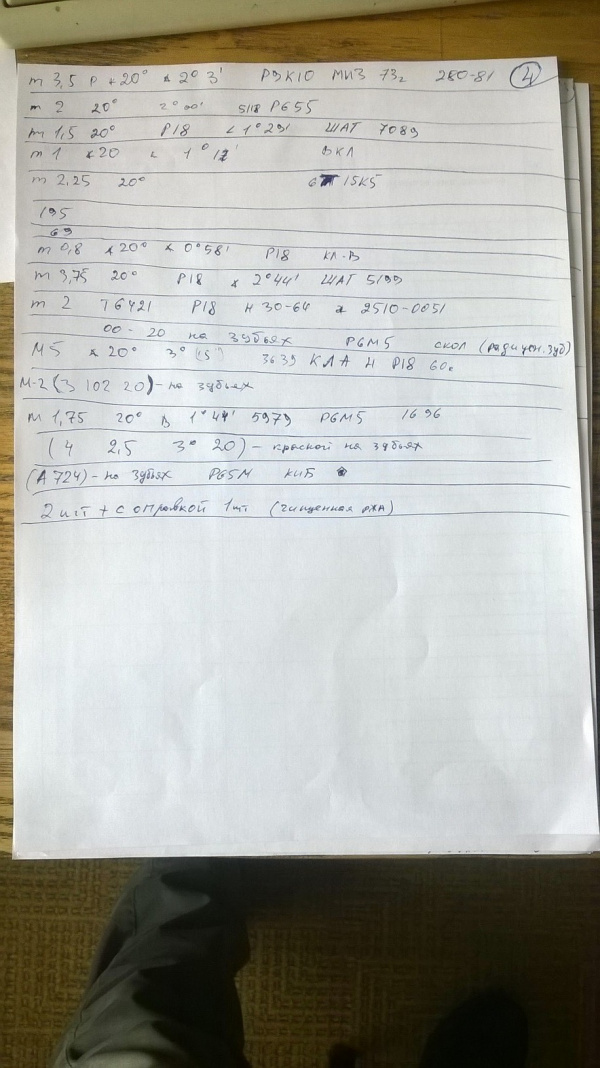 m 3,5 P ∢20° ∢ 2° 3' Р9К10 МИЗ 73г 280-81 4
m 2 20° 2° 00' 5118 Р6 5 5
m 1,5 20° P18 ∢ 1° 29' ШАТ 7089
m 1 ∢20 ∢ 1° ВКЛ
m 2,25 20° 15К5
195
69
m 0,8 ∢20° ∢ 0°58' P18 КЛ-В
m 3,75 20° P18 ∢ 2°44' ШАТ 5199
m 2 76421 P18 Н 30-64 2510-0051
00 - 20 на зубьях Р6М5 скол (радиусн. зуб)
М5 ∢ 20° 3° (15') 3639 КЛА Н P18 60г
М-2 (3 102 20) - на зубьях
m 1,75 20° В 1°44' 5979 Р6М5 1696
(4 2,5 3° 20) - краской на зубьях
(А 724) - на зубьях Р65М КИБ
2 шт + с оправкой 1 шт (чищенная ржа)